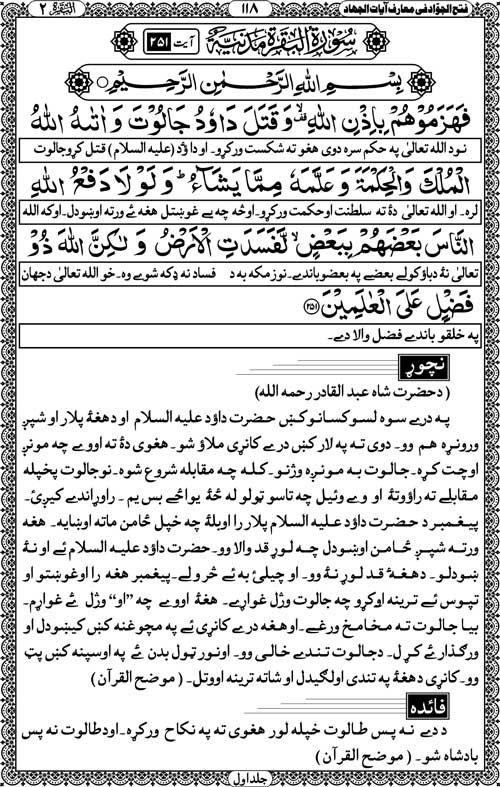 فتح الجوّاد في معارف آيات الجهاد ١١٨ البقرة ٢
سُوْرَةُ الْبَقَرَةِ مَدَنِيَّةٌ آیت ٢٥١
بِسْمِ اللهِ الرَّحْمٰنِ الرَّحِيْمِ
فَهَزَمُوْهُمْ بِاِذْنِ اللهِ وَقَتَلَ دَاوٗدُ جَالُوْتَ وَاٰتٰىهُ اللهُ
نود الله تعالیٰ په حکم سره دوی هغو ته شکست ورکړو۔ او داؤد (علیه السلام) قتل کړو جالوت
الْمُلْكَ وَالْحِكْمَةَ وَعَلَّمَهٗ مِمَّا يَشَآءُ ؕ وَلَوْلَا دَفْعُ اللهِ
لره۔ او الله تعالیٰ دۀ ته سلطنت او حکمت ورکړو۔ او څه چه یې غوښتل هغه ئے ورته اوښودل۔ اوکه الله
النَّاسَ بَعْضَهُمْ بِبَعْضٍ لَّفَسَدَتِ الْاَرْضُ وَلٰكِنَّ اللهَ ذُوْ
تعالیٰ نۀ دباؤ کولے بعضے په بعضو باندے۔ نو زمکه به د فساد نه ډکه شوے وه۔ خو الله تعالیٰ د جهان
فَضْلٍ عَلَى الْعٰلَمِيْنَ ٢٥١
په خلقو باندے فضل والا دے۔
نچوړ
(د حضرت شاه عبد القادر رحمه الله)
په درے سوه لسو کسانو کښ حضرت داؤد علیه السلام او دهغۀ پلار او شپږ
ورونړه هم وو۔ دوی ته په لار کښ درے کانړی ملاؤ شو۔ هغوی دۀ ته اووے چه مونږ
اوچت کړه۔ جالوت به مونږه وژنو۔ کله چه مقابله شروع شوه۔ نو جالوت پخپله
مقابلے ته راؤوتۀ او وے وئیل چه تاسو ټولو له خو زۀ یواځے بس یم۔ راوړاندے کیږئ۔
پیغمبر د حضرت داؤد علیه السلام پلار را اوبلۀ چه خپل ځامن ماته اوښایه۔ هغه
ورته شپږ ځامن اوښودل چه لوړ قد والا وو۔ حضرت داؤد علیه السلام ئے او نۀ
ښودلو۔ دهغۀ قد لوړ نۀ وو۔ او چیلئ به ئے څرولے۔ پیغمبر هغه را اوغوښتو او
تپوس ئے ترینه اوکړو چه جالوت وژل غواړے۔ هغۀ اووے چه "او" وژل ئے غواړم۔
بیا جالوت ته مخامخ ورغے۔ او هغه درے کانړی ئے په مچوغنه کښ کیښودل او
ورګذارئے کړل۔ د جالوت تندے خالی وو۔ او نور ټول بدن ئے په اوسپنه کښ پټ
وو۔ کانړی دهغۀ په تندی اولګیدل او شاته ترینه اووتل۔ (موضح القرآن)
فائده
د دے نه پس طالوت خپله لور هغوی ته په نکاح ورکړه۔ او د طالوت نه پس
بادشاه شو۔ (موضح القرآن)
جلد اول